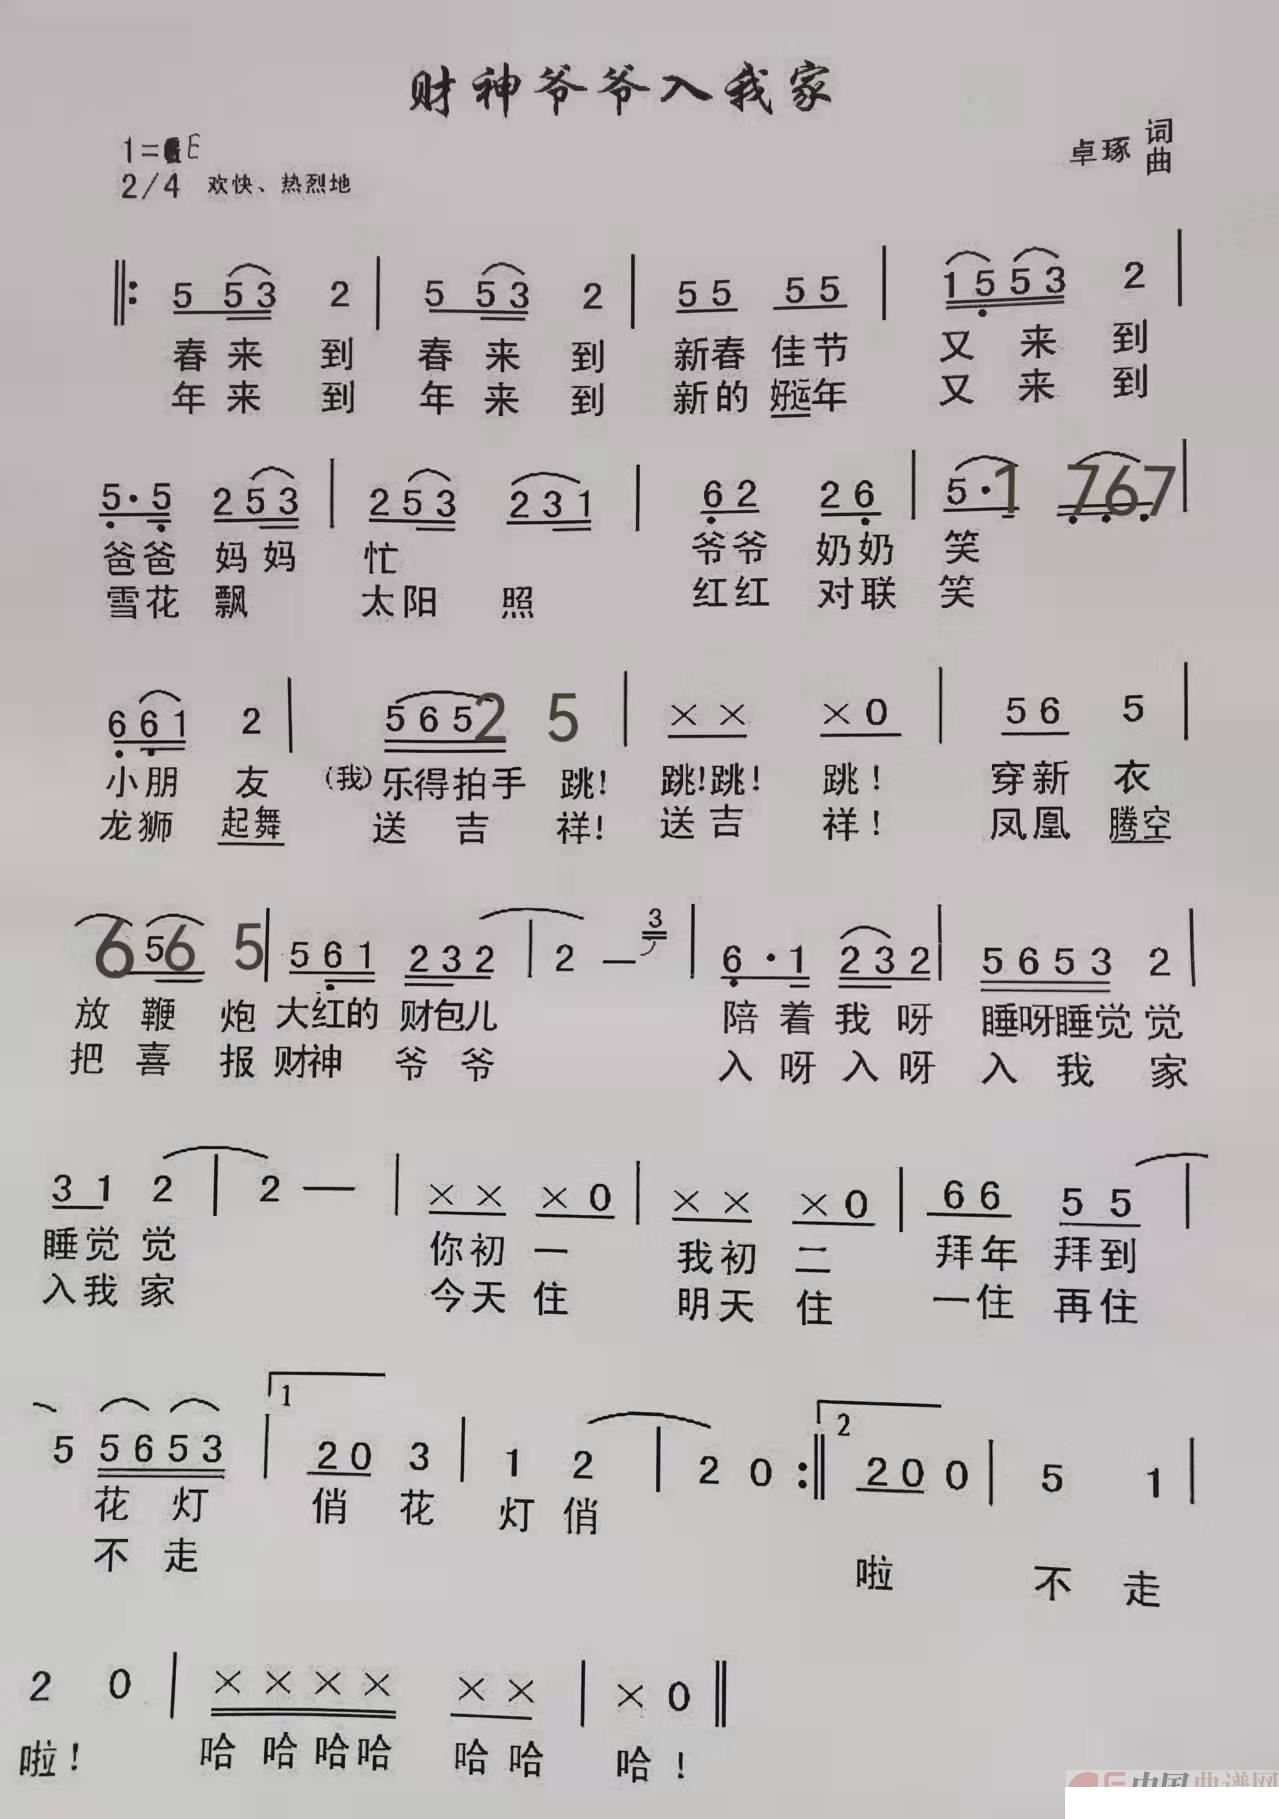 财神爷爷入我家
1=E
2/4 欢快、热烈地
卓琢 词
曲
5 5 3 2 | 5 5 3 2 | 5 5 5 5 | 1 5 5 3 2 |
春来到 春来到 新春佳节 又来到
年来到 年来到 新的好运年 又来到
5·5 2 5 3 | 2 5 3 2 3 1 | 6 2 2 6 | 5·1 7 6 7 |
爸爸妈妈 忙 爷爷奶奶 笑
雪花飘 太阳照 红红对联 笑
6 6 1 2 | 5 6 5 2 5 | × × × 0 | 5 6 5 |
小朋友 (我)乐得拍手跳! 跳!跳!跳! 穿新衣
龙狮起舞 送吉祥! 送吉祥! 凤凰腾空
6 5 6 5 | 5 6 1 2 3 2 | 2 — 3 | 6·1 2 3 2 | 5 6 5 3 2 |
放鞭炮 大红的财包儿 陪着我呀 睡呀睡觉觉
把喜报 财神爷爷 入呀入呀 入我家
3 1 2 | 2 — | × × × 0 | × × × 0 | 6 6 5 5 |
睡觉觉 你初一 我初二 拜年拜到
入我家 今天住 明天住 一住再住
5 5 6 5 3 | 1 2 0 3 | 1 2 | 2 0 :‖ 2 2 0 0 | 5 1 |
花灯 俏花 灯俏
不走 啦 不走
2 0 | × × × × × × | × 0 ‖
啦! 哈哈哈哈 哈哈 哈!
中国曲谱网